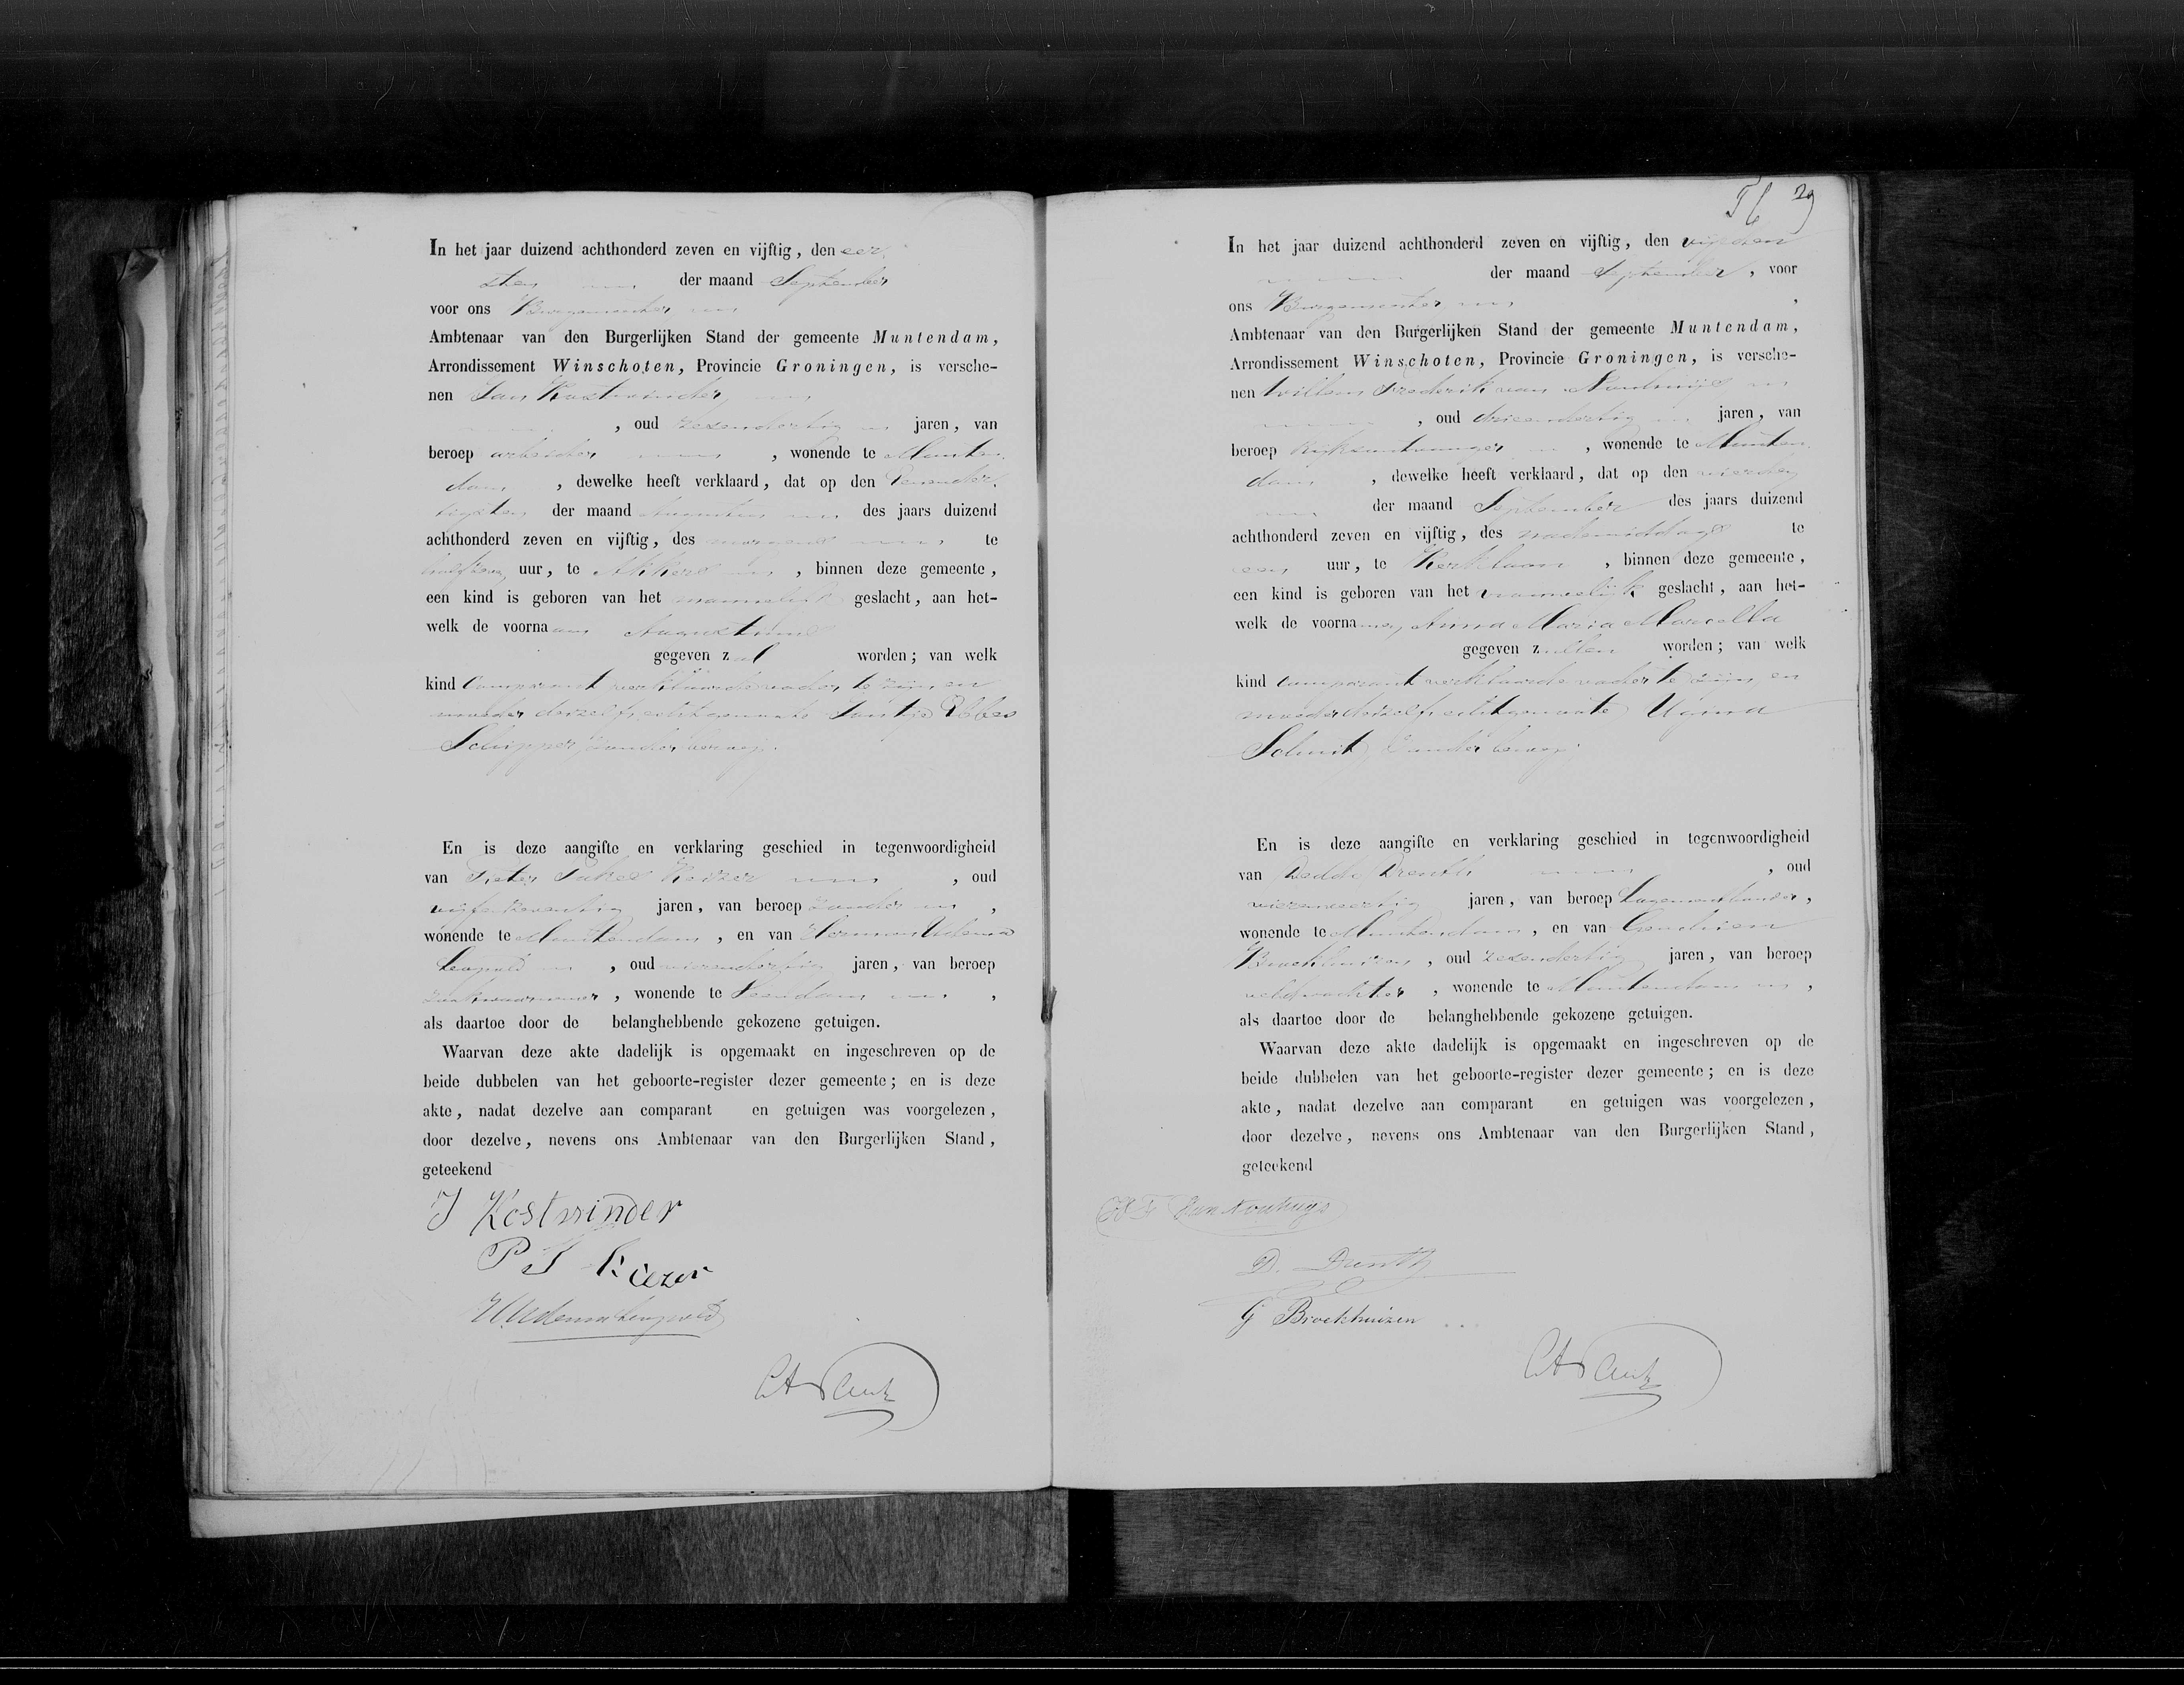 In het jaar duizend achthonderd zeven en vijftig, den eer
sten der maand September
voor ons Burgemeester
Ambtenaar van den Burgerlijken Stand der gemeente Muntendam,
Arrondissement Winschoten, Provincie Groningen, is versche-
nen Jan Kostwinder
, oud zesendertig jaren, van
beroep arbeider , wonende te Munten
dam , dewelke heeft verklaard, dat op den eenender
tigsten der maand Augustus des jaars duizend
achthonderd zeven en vijftig, des morgens te
uur, te , binnen deze gemeente,
een kind is geboren van het mannelijk geslacht, aan het-
welk de voornaam Augustinus
gegeven zal worden; van welk
kind Comparant verklaarde vader te zijn, en
moeder deszelfs echtgenoote
Schipper, zonder beroep.
En is deze aangifte en verklaring geschied in tegenwoordigheid
van Pieter Keizer , oud
vijfenzeventig jaren, van beroep zonder ,
wonende te Muntendam , en van Herman Udema
Leopold , oud vierendertig jaren, van beroep
zaakwaarnemer , wonende te Veendam ,
als daartoe door de belanghebbende gekozene getuigen.
Waarvan deze akte dadelijk is opgemaakt en ingeschreven op de
beide dubbelen van het geboorte-register dezer gemeente; en is deze
akte, nadat dezelve aan comparant en getuigen was voorgelezen,
door dezelve, nevens ons Ambtenaar van den Burgerlijken Stand,
geteekend
J Kostwinder
P J Kiezer
HUdemaLeopold
29
In het jaar duizend achthonderd zeven en vijftig, den vijfden
der maand September , voor
ons Burgemeester ,
Ambtenaar van den Burgerlijken Stand der gemeente Muntendam,
Arrondissement Winschoten, Provincie Groningen, is versche-
nen Willem Frederik van Nouhuijs
, oud drieendertig jaren, van
beroep Rijksontvanger , wonende te Munten
dam , dewelke heeft verklaard, dat op den vierden
der maand September des jaars duizend
achthonderd zeven en vijftig, des nademiddags te
een uur, te Kerklaan , binnen deze gemeente,
een kind is geboren van het vrouwelijk geslacht, aan het-
welk de voornamen Anna Maria Marcella
gegeven zullen worden; van welk
kind Comparant verklaarde vader te zijn, en
moeder deszelfs echtgenoote Ugina
Schuit, zonder beroep.
En is deze aangifte en verklaring geschied in tegenwoordigheid
van Dedde Drenth , oud
vierenveertig jaren, van beroep Logementhouder,
wonende te Muntendam , en van Gerhrien
Broekhuizen , oud zesendertig jaren, van beroep
veldwachter , wonende te Muntendam ,
als daartoe door de belanghebbende gekozene getuigen.
Waarvan deze akte dadelijk is opgemaakt en ingeschreven op de
beide dubbelen van het geboorte-register dezer gemeente; en is deze
akte, nadat dezelve aan comparant en getuigen was voorgelezen,
door dezelve, nevens ons Ambtenaar van den Burgerlijken Stand,
geteekend
W F Van Nouhuys
D. Drenth
G Broekhuizen